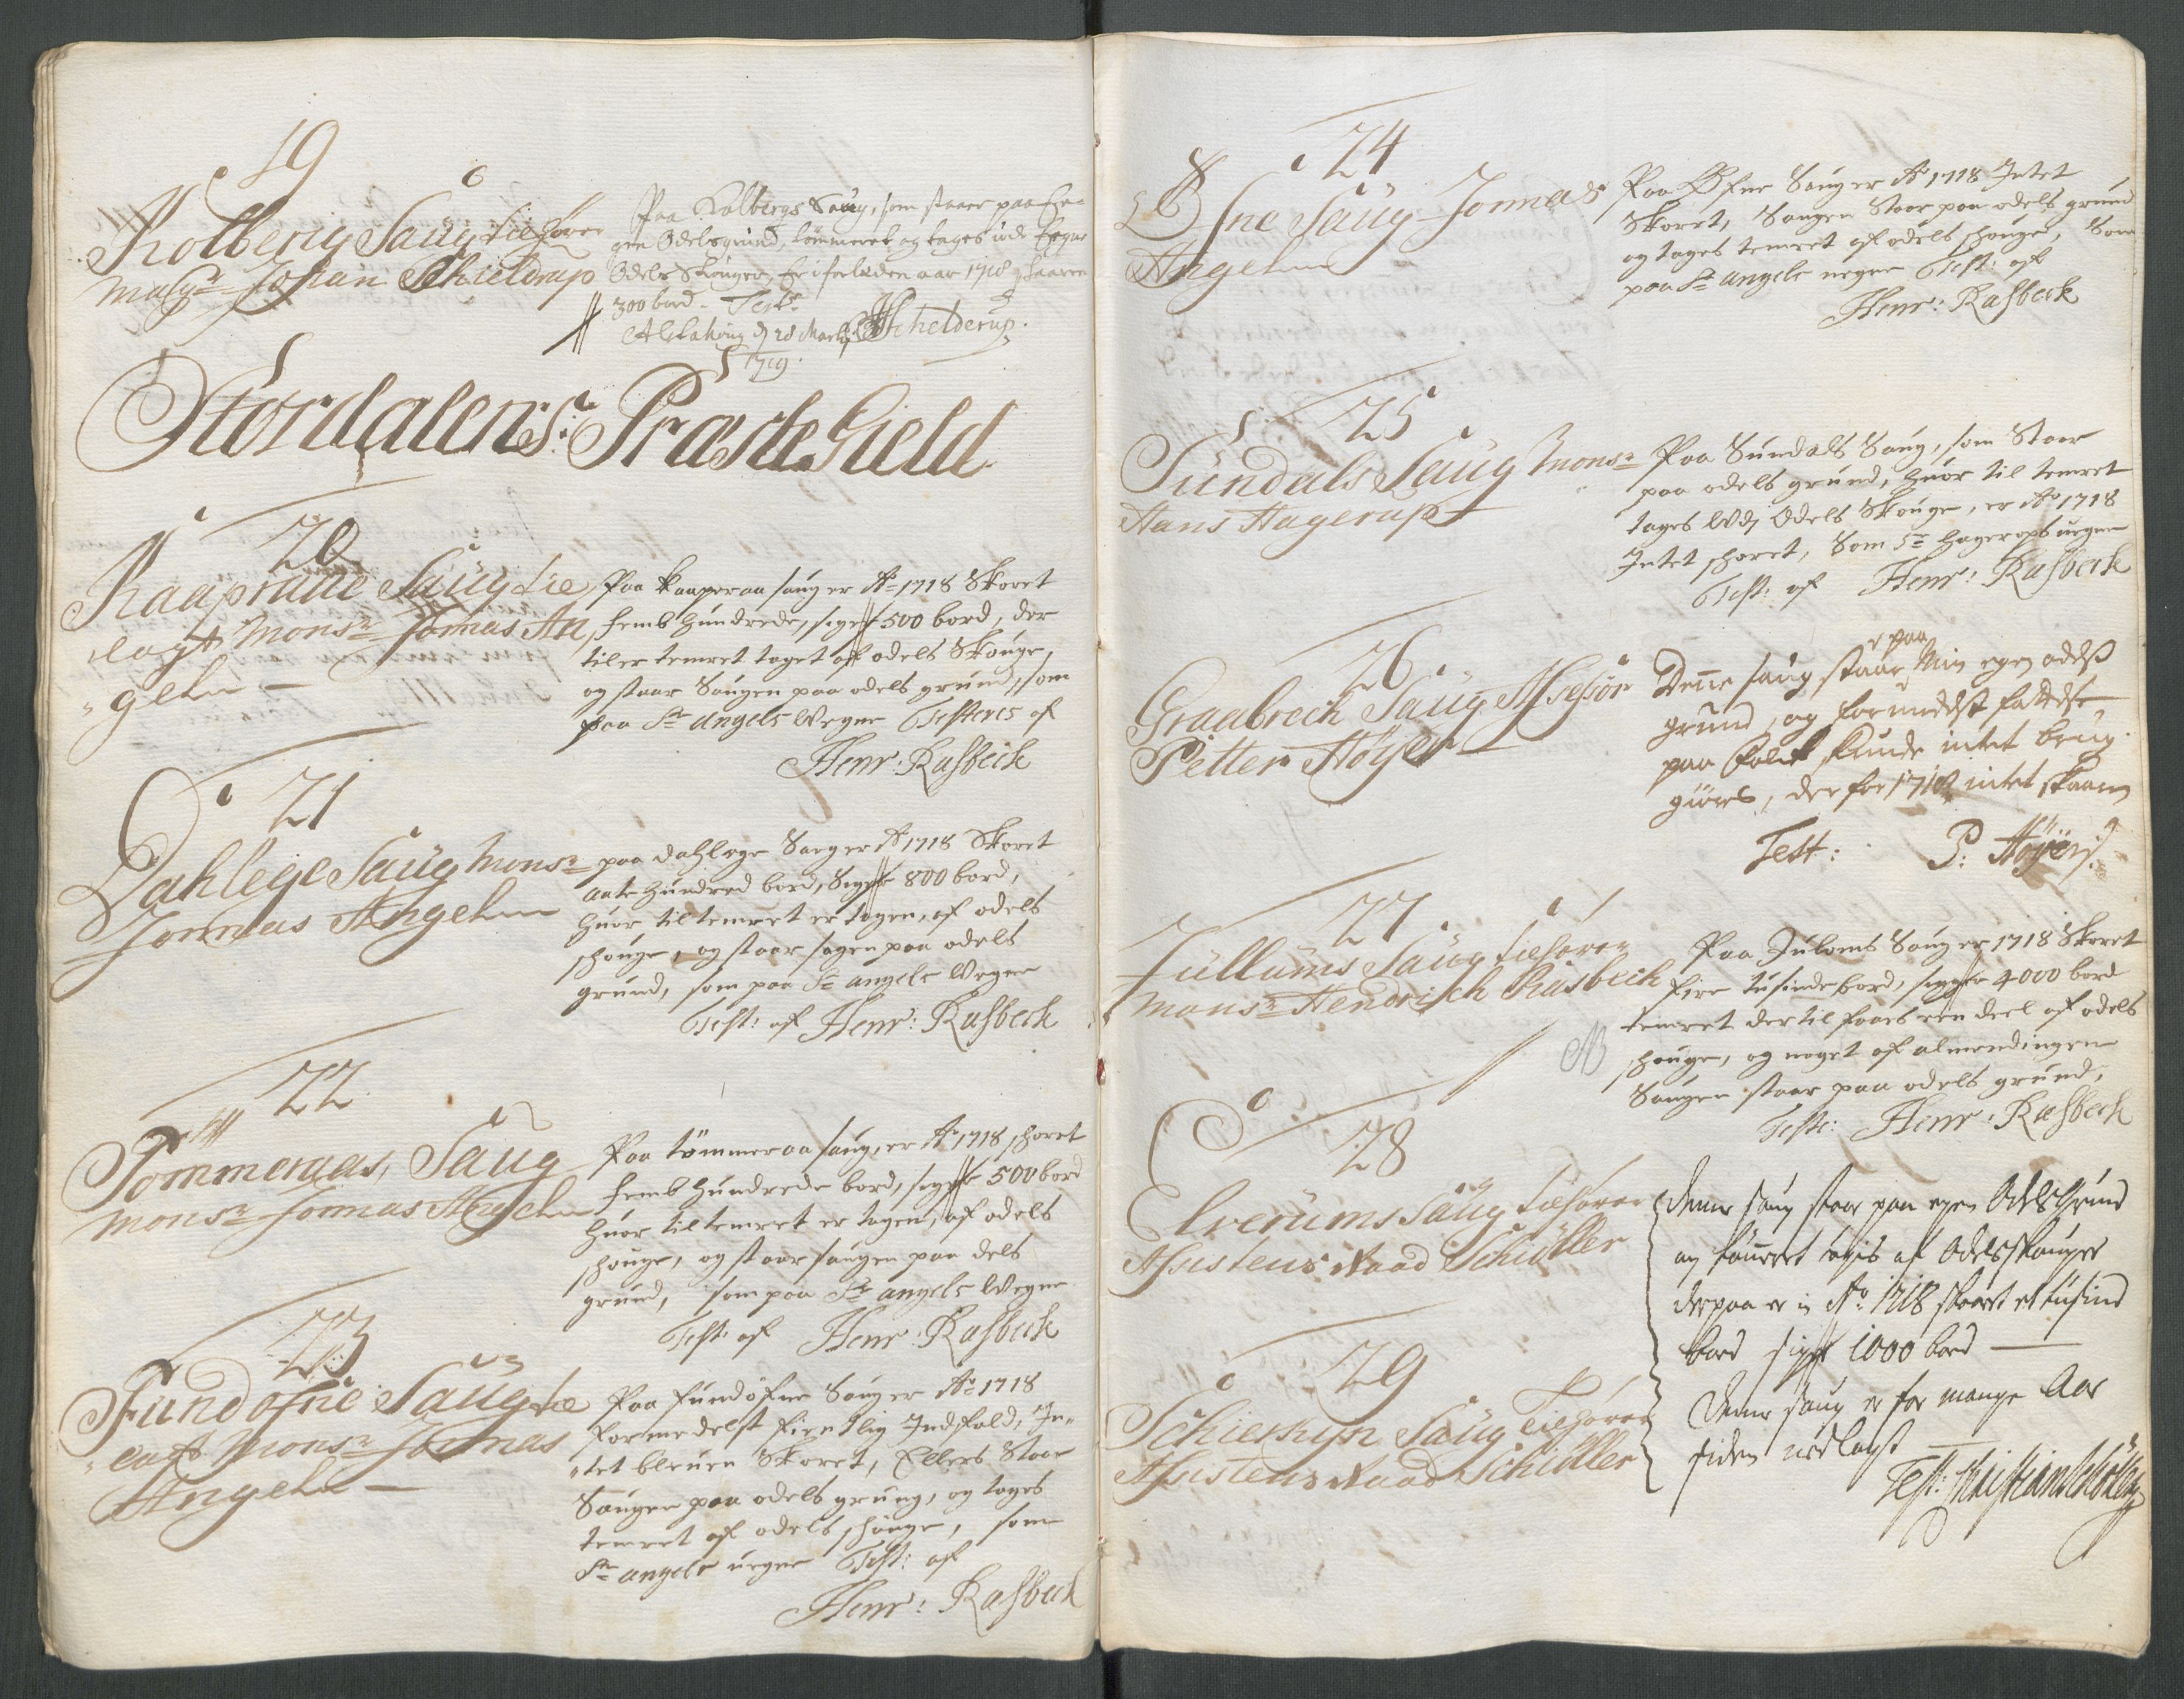 19
Kolberig Saug Tilhører
Johan Schieldrup
Paa Kolbergs Saug, som staaer paa
Odelsgrund, tømmeret og tages
Odels Skouger, Er i forleden aar 1718 schaaren
300 bord. Test:
d 28 Marty Schelderup.
1719.
Størdalens: Præste Gield
20
Kaapraae Saug Tie
lagt Monsr Jonnas An
geln
Paa Kaaperaa saug er Ao 1718 Skoret
femb hundrede, siger 500 bord, der
til er temret taget af odels Skouge,
og staar Saugen paa odels grund, som
paa Sr Angels Wegne Testeres af
Henr: Kasbeck
21
Dahlege Saug Monsr
Jonnas Angeln
paa dahlege Saug er Ao 1718 Skoret
aate hundred bord, Siger 800 bord,
huor til temret er tagen, af odels
schouge, og staar sagen paa odels
grund, som paa Sr angels Wegne
Test: af Henr: Kasbeck
22
Tømmeraas, Saug
Monsr Jonnas Angeln
Paa tømmeraa saug, er Ao 1718 schoret
femb hundrede bord, siger 500 bord
huor til temret er tagen, af odels
schouge, og staar saugen paa dels
grund, som paa Sr angels Wegne
Test: af Henr: Kasbeck
23
Fundøfne Saug Tie
lagt Monsr Jonnas
Angeln
Paa fundøfne Saug er Ao 1718
formedelst fiendtlig Indfald, In-
tet bleuen Skoret, Ellers Staar
Saugen paa odels grung, og tages
temret af odels schouge, som
Sr angels uegne Test: af
Henr: Kasbeck
24
Øfne Saug Jonnas
Angeln
Paa Øfne Saug er Ao 1718 Intet
Skoret, Saugen Staar paa odels grund
og tages temret af odels schouge, Som
paa Sr angels uegne Test: af
Henr: Kasbeck
25
Sundals Saug Monsr
Hans Hagerup
Paa Sundals Saug, som Staar
paa odels grund, huor til temret
tages Odels Skouge, er Ao 1718
Intet schoret, Som Sr Hagerups uegne
Test: af Henr: Kasbeck
26
Graabrech Saug Assessor
Petter Høyer
Denne saug staar paa Min egen odels
grund, og formedelst fattelse
paa Folk kunde intet brug
giøres, derfor 1718 intet skaaren
Test: P: Høyer
27
Jullums Saug Tilhører
Monsr Hendrich Kasbech
Paa Julums Saug er 1718 Skoret
fire tusinde bord, siger 4000 bord
temret der til faaes een deel af odels
schouge, og noget af almendingen
Saugen staar paa odels grund,
Teste: Henr: Kasbeck
28
Elverums Saug Tilhører
Assistens Raad Schøller
Denne saug staar paa egen Odelsgrund
og tømret tages af Odelsskouger
derpaa er i Ao 1718 skaaret et tusind
bord siger 1000 bord
29
Schieskyn Saug Tilhører
Assistens Raad Schøller
Denne saug er for mange Aar
siden nedlagt
Test: Christian Schøller